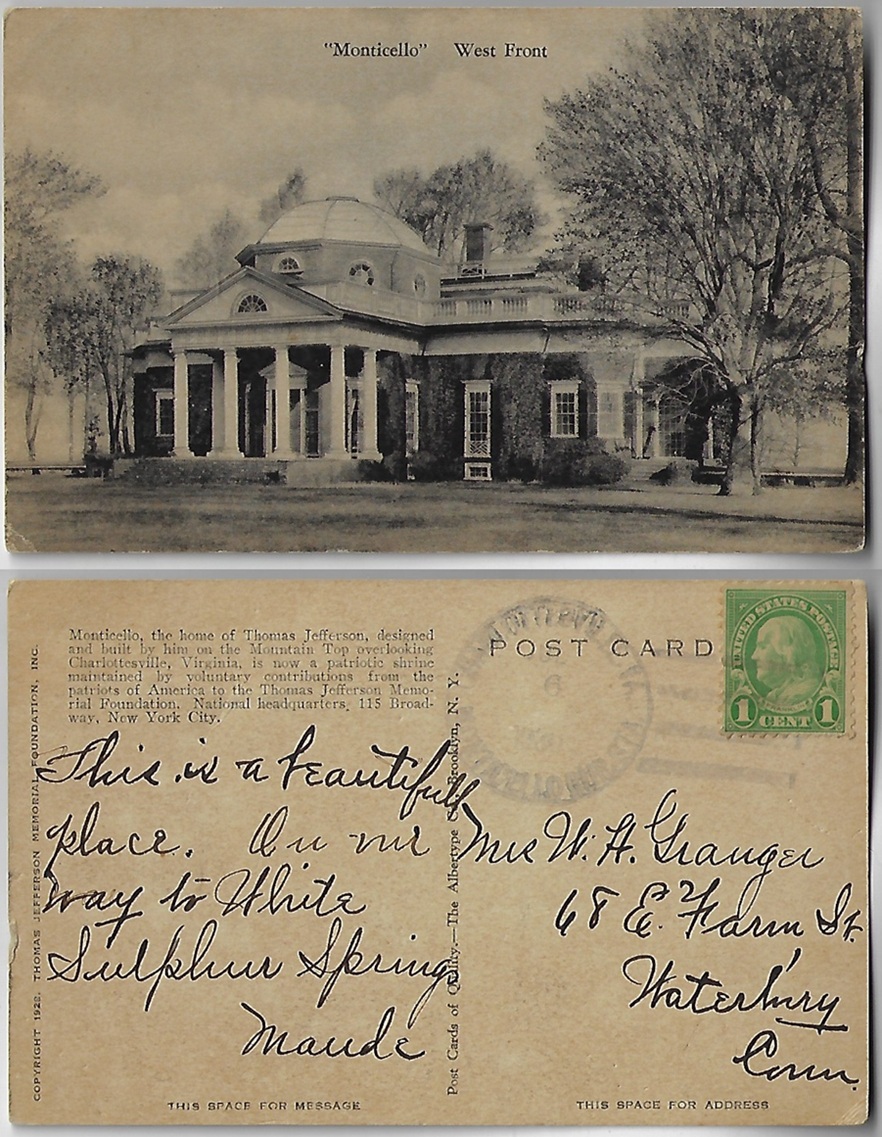 "Monticello" West Front
Monticello, the home of Thomas Jefferson, designed
and built by him on the Mountain Top overlooking
Charlottesville, Virginia, is now a patriotic shrine
maintained by voluntary contributions from the
patriots of America to the Thomas Jefferson Memo-
rial Foundation. National headquarters, 115 Broad-
way, New York City.
This is a beautifull
place. On our
way to White
Sulphur Spring
Maude
THIS SPACE FOR MESSAGE
COPYRIGHT 1922. THOMAS JEFFERSON MEMORIAL FOUNDATION, INC.
Post Cards of Quality.—The Albertype Co., Brooklyn, N. Y.
POST CARD
6
UNITED STATES POSTAGE
1 CENT 1
Mrs W. H. Granger
68 E. Farm St.
Waterbury
Conn.
THIS SPACE FOR ADDRESS